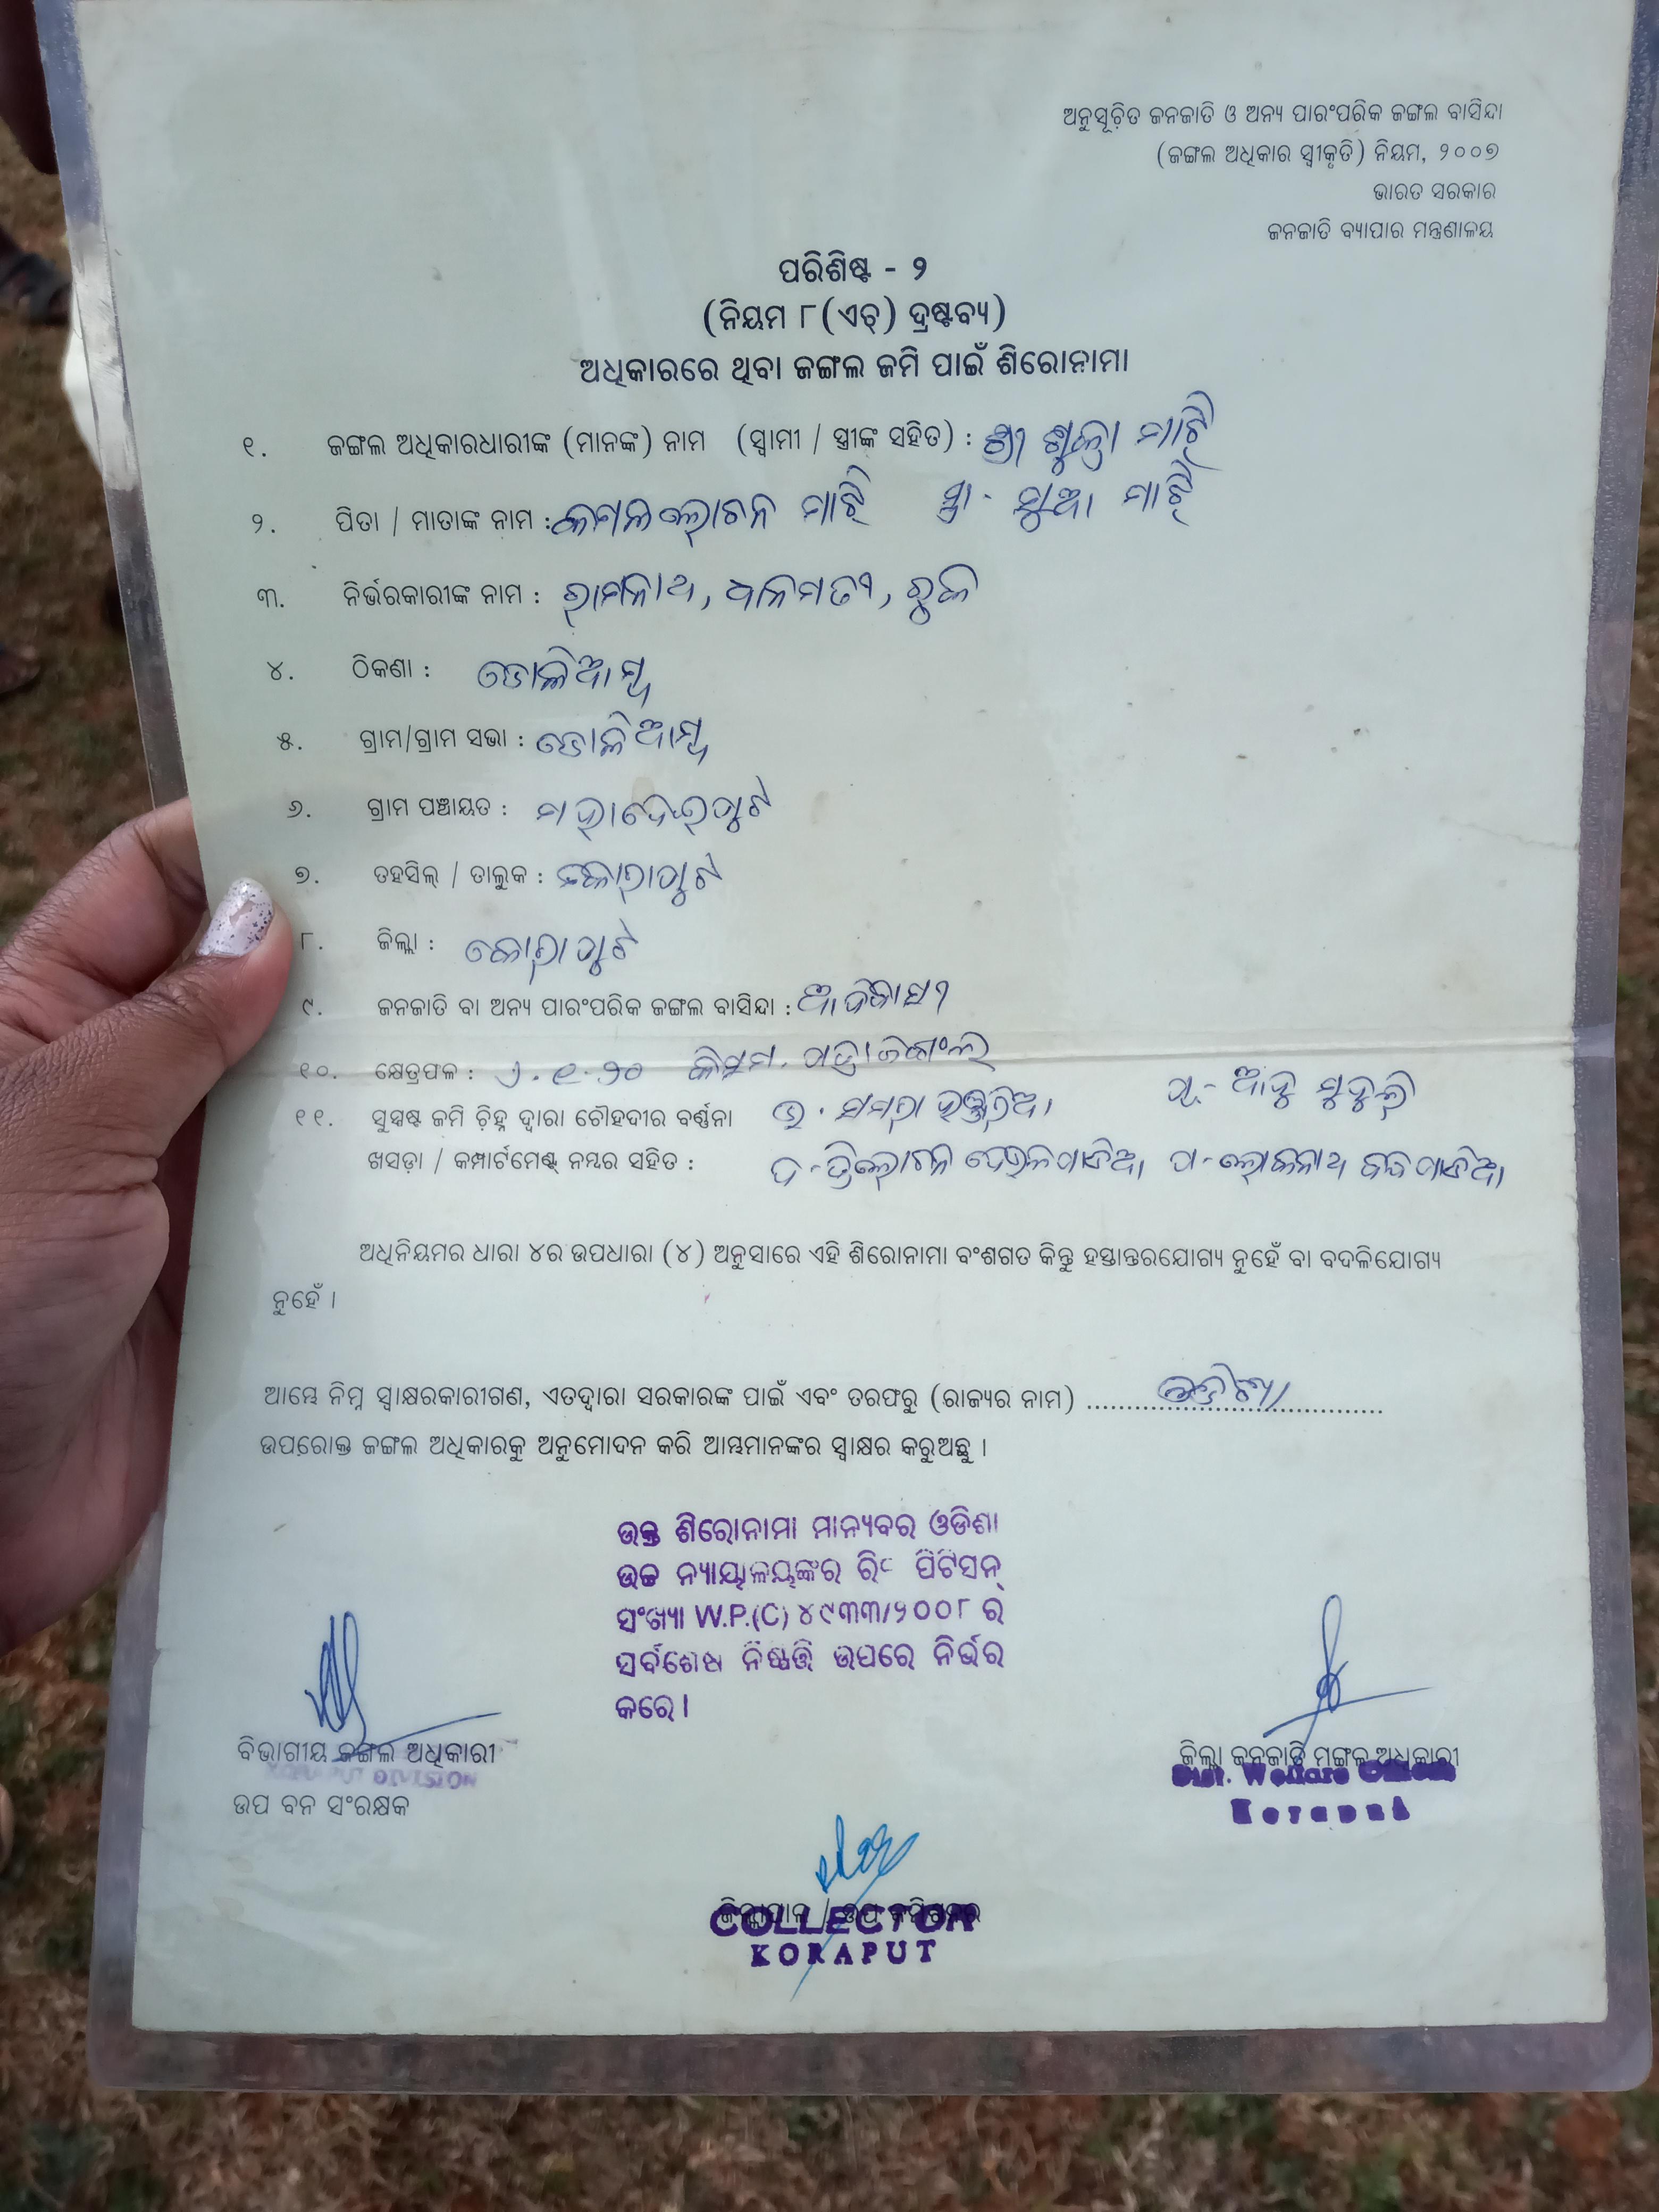 ଅନୁସୂଚିତ ଜନଜାତି ଓ ଅନ୍ୟ ପାରଂପରିକ ଜଙ୍ଗଲ ବାସିନ୍ଦା
(ଜଙ୍ଗଲ ଅଧିକାର ସ୍ୱୀକୃତି) ନିୟମ, ୨୦୦୭
ଭାରତ ସରକାର
ଜନଜାତି ବ୍ୟାପାର ମନ୍ତ୍ରଣାଳୟ
ପରିଶିଷ୍ଟ - ୨
(ନିୟମ ୮(ଏଚ୍) ଦ୍ରଷ୍ଟବ୍ୟ)
ଅଧିକାରରେ ଥିବା ଜଙ୍ଗଲ ଜମି ପାଇଁ ଶିରୋନାମା
୧. ଜଙ୍ଗଲ ଅଧିକାରଧାରୀଙ୍କ (ମାନଙ୍କ) ନାମ (ସ୍ୱାମୀ / ସ୍ତ୍ରୀଙ୍କ ସହିତ) : ଶ୍ରୀ ମାଝି
୨. ପିତା / ମାତାଙ୍କ ନାମ : କମଳଲୋଚନ ମାଝି ସ୍ତ୍ରୀ - ମାଝି
୩. ନିର୍ଭରକାରୀଙ୍କ ନାମ : ରାମନାଥ, ଧାନମତୀ,
୪. ଠିକଣା : ଡୋଲିଆମ୍ବ
୫. ଗ୍ରାମ/ଗ୍ରାମ ସଭା : ଡୋଲିଆମ୍ବ
୬. ଗ୍ରାମ ପଞ୍ଚାୟତ : ମହାଦେଇପୁଟ
୭. ତହସିଲ୍ / ତାଲୁକ : କୋରାପୁଟ
୮. ଜିଲ୍ଲା : କୋରାପୁଟ
୯. ଜନଜାତି ବା ଅନ୍ୟ ପାରଂପରିକ ଜଙ୍ଗଲ ବାସିନ୍ଦା : ଆଦିବାସୀ
୧୦. କ୍ଷେତ୍ରଫଳ : କିସମ. ପତ୍ରା ଜଙ୍ଗଲ
୧୧. ସୁସ୍ପଷ୍ଟ ଜମି ଚିହ୍ନ ଦ୍ୱାରା ଚୌହଦୀର ବର୍ଣ୍ଣନା ଉ. ସମରା ପୂ -
ଖସଡ଼ା / କମ୍ପାର୍ଟମେଣ୍ଟ୍ ନମ୍ବର ସହିତ : ଦ - ତ୍ରିଲୋଚନ ପ - ଲୋକନାଥ
ଅଧିନିୟମର ଧାରା ୪ର ଉପଧାରା (୪) ଅନୁସାରେ ଏହି ଶିରୋନାମା ବଂଶଗତ କିନ୍ତୁ ହସ୍ତାନ୍ତରଯୋଗ୍ୟ ନୁହେଁ ବା ବଦଳିଯୋଗ୍ୟ
ନୁହେଁ ।
ଆମ୍ଭେ ନିମ୍ନ ସ୍ୱାକ୍ଷରକାରୀଗଣ, ଏତଦ୍ୱାରା ସରକାରଙ୍କ ପାଇଁ ଏବଂ ତରଫରୁ (ରାଜ୍ୟର ନାମ) ଓଡ଼ିଶା
ଉପରୋକ୍ତ ଜଙ୍ଗଲ ଅଧିକାରକୁ ଅନୁମୋଦନ କରି ଆମ୍ଭମାନଙ୍କର ସ୍ୱାକ୍ଷର କରୁଅଛୁ ।
ଉକ୍ତ ଶିରୋନାମା ମାନ୍ୟବର ଓଡିଶା
ଉଚ୍ଚ ନ୍ୟାୟାଳୟଙ୍କର ରିଟ ପିଟିସନ୍
ସଂଖ୍ୟା W.P.(C) ୪୯୩୩/୨୦୦୮ ର
ସର୍ବଶେଷ ନିଷ୍ପତ୍ତି ଉପରେ ନିର୍ଭର
କରେ।
ବିଭାଗୀୟ ଜଙ୍ଗଲ ଅଧିକାରୀ
KORAPUT DIVISION
ଉପ ବନ ସଂରକ୍ଷକ
ଜିଲ୍ଲା ଜନଜାତି ମଙ୍ଗଳ ଅଧିକାରୀ
Dist. Welfare Officer
Koraput
ଜିଲ୍ଲାପାଳ / ଉପ କମିଶନର
COLLECTOR
KORAPUT